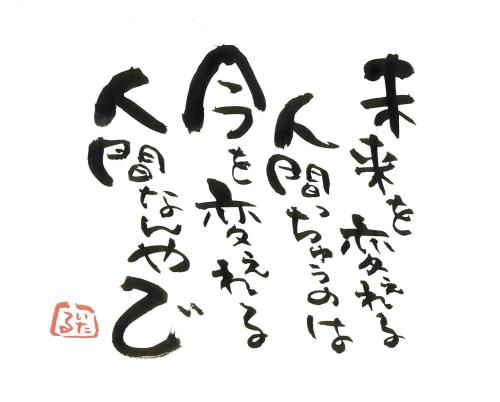 未来を変えれる
人間っちゅうのは
今を変えれる
人間なんやで
いた
る